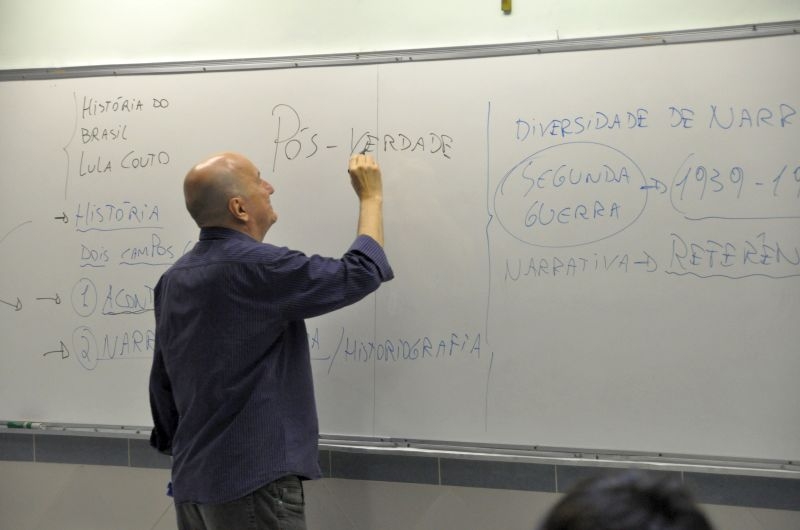 HISTÓRIA DO
BRASIL
LULA COUTO
→ HISTÓRIA
DOIS CAMPOS
→ 1 ACONT
→ 2 NARR / HISTORIOGRAFIA
PÓS-VERDADE
DIVERSIDADE DE NARR
SEGUNDA
GUERRA → 1939-19
NARRATIVA → REFERÊN